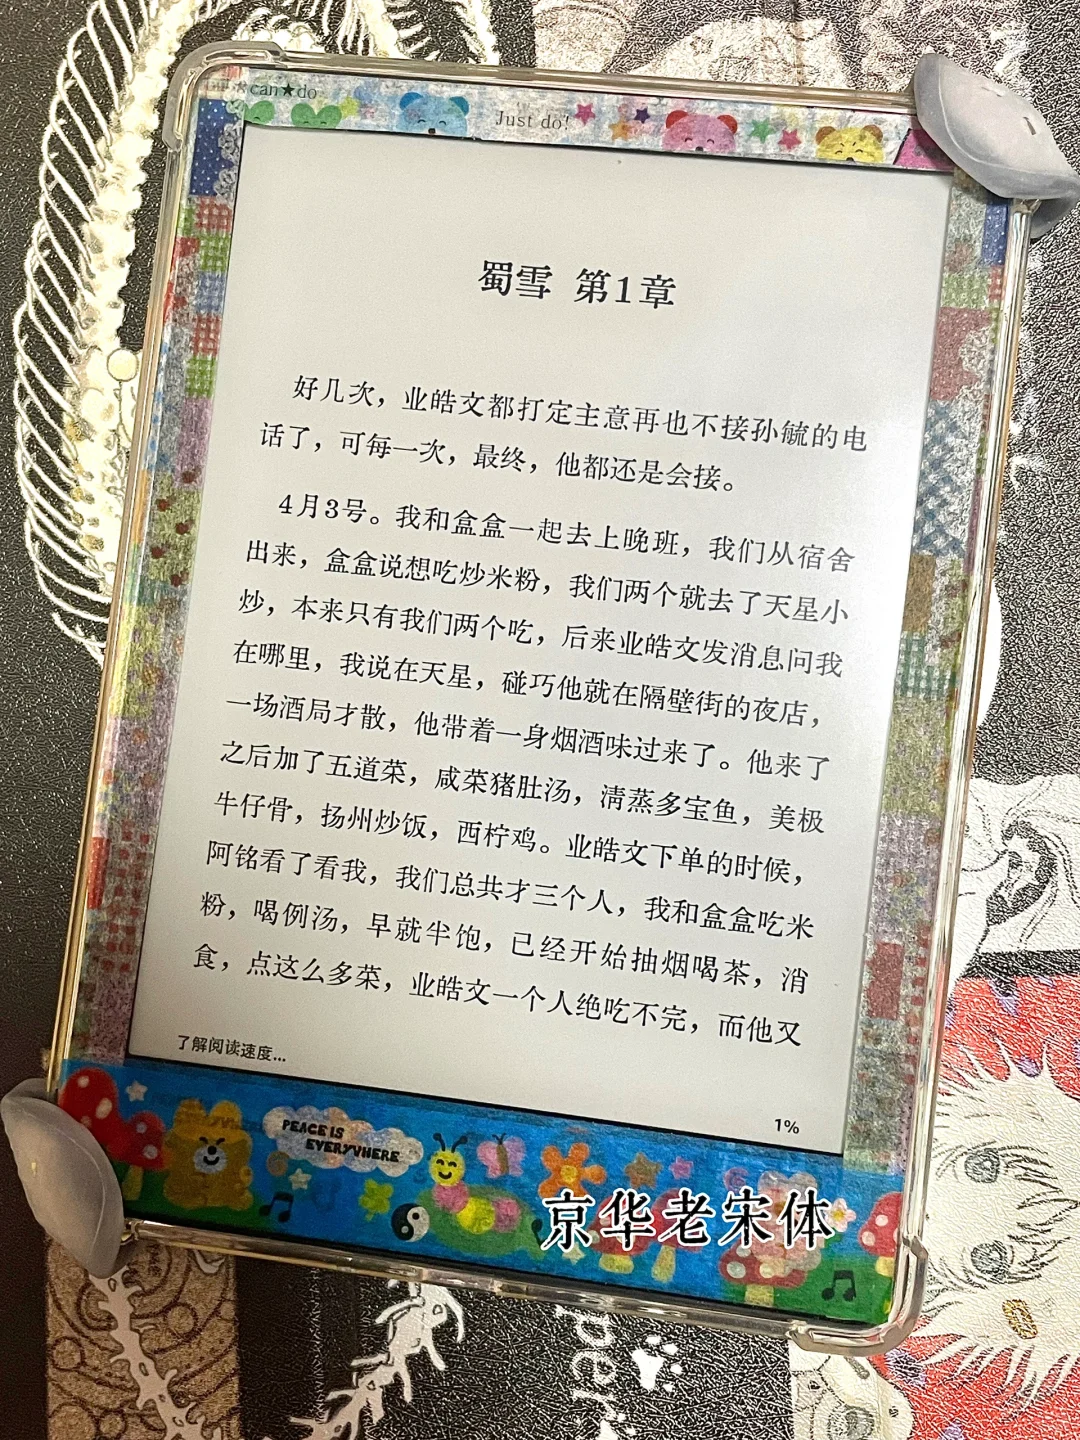 can★do
Just do!
蜀雪 第1章
好几次，业皓文都打定主意再也不接孙毓的电
话了，可每一次，最终，他都还是会接。
4月3号。我和盒盒一起去上晚班，我们从宿舍
出来，盒盒说想吃炒米粉，我们两个就去了天星小
炒，本来只有我们两个吃，后来业皓文发消息问我
在哪里，我说在天星，碰巧他就在隔壁街的夜店，
一场酒局才散，他带着一身烟酒味过来了。他来了
之后加了五道菜，咸菜猪肚汤，清蒸多宝鱼，美极
牛仔骨，扬州炒饭，西柠鸡。业皓文下单的时候，
阿铭看了看我，我们总共才三个人，我和盒盒吃米
粉，喝例汤，早就半饱，已经开始抽烟喝茶，消
食，点这么多菜，业皓文一个人绝吃不完，而他又
了解阅读速度...
1%
PEACE IS
EVERYWHERE
京华老宋体
per